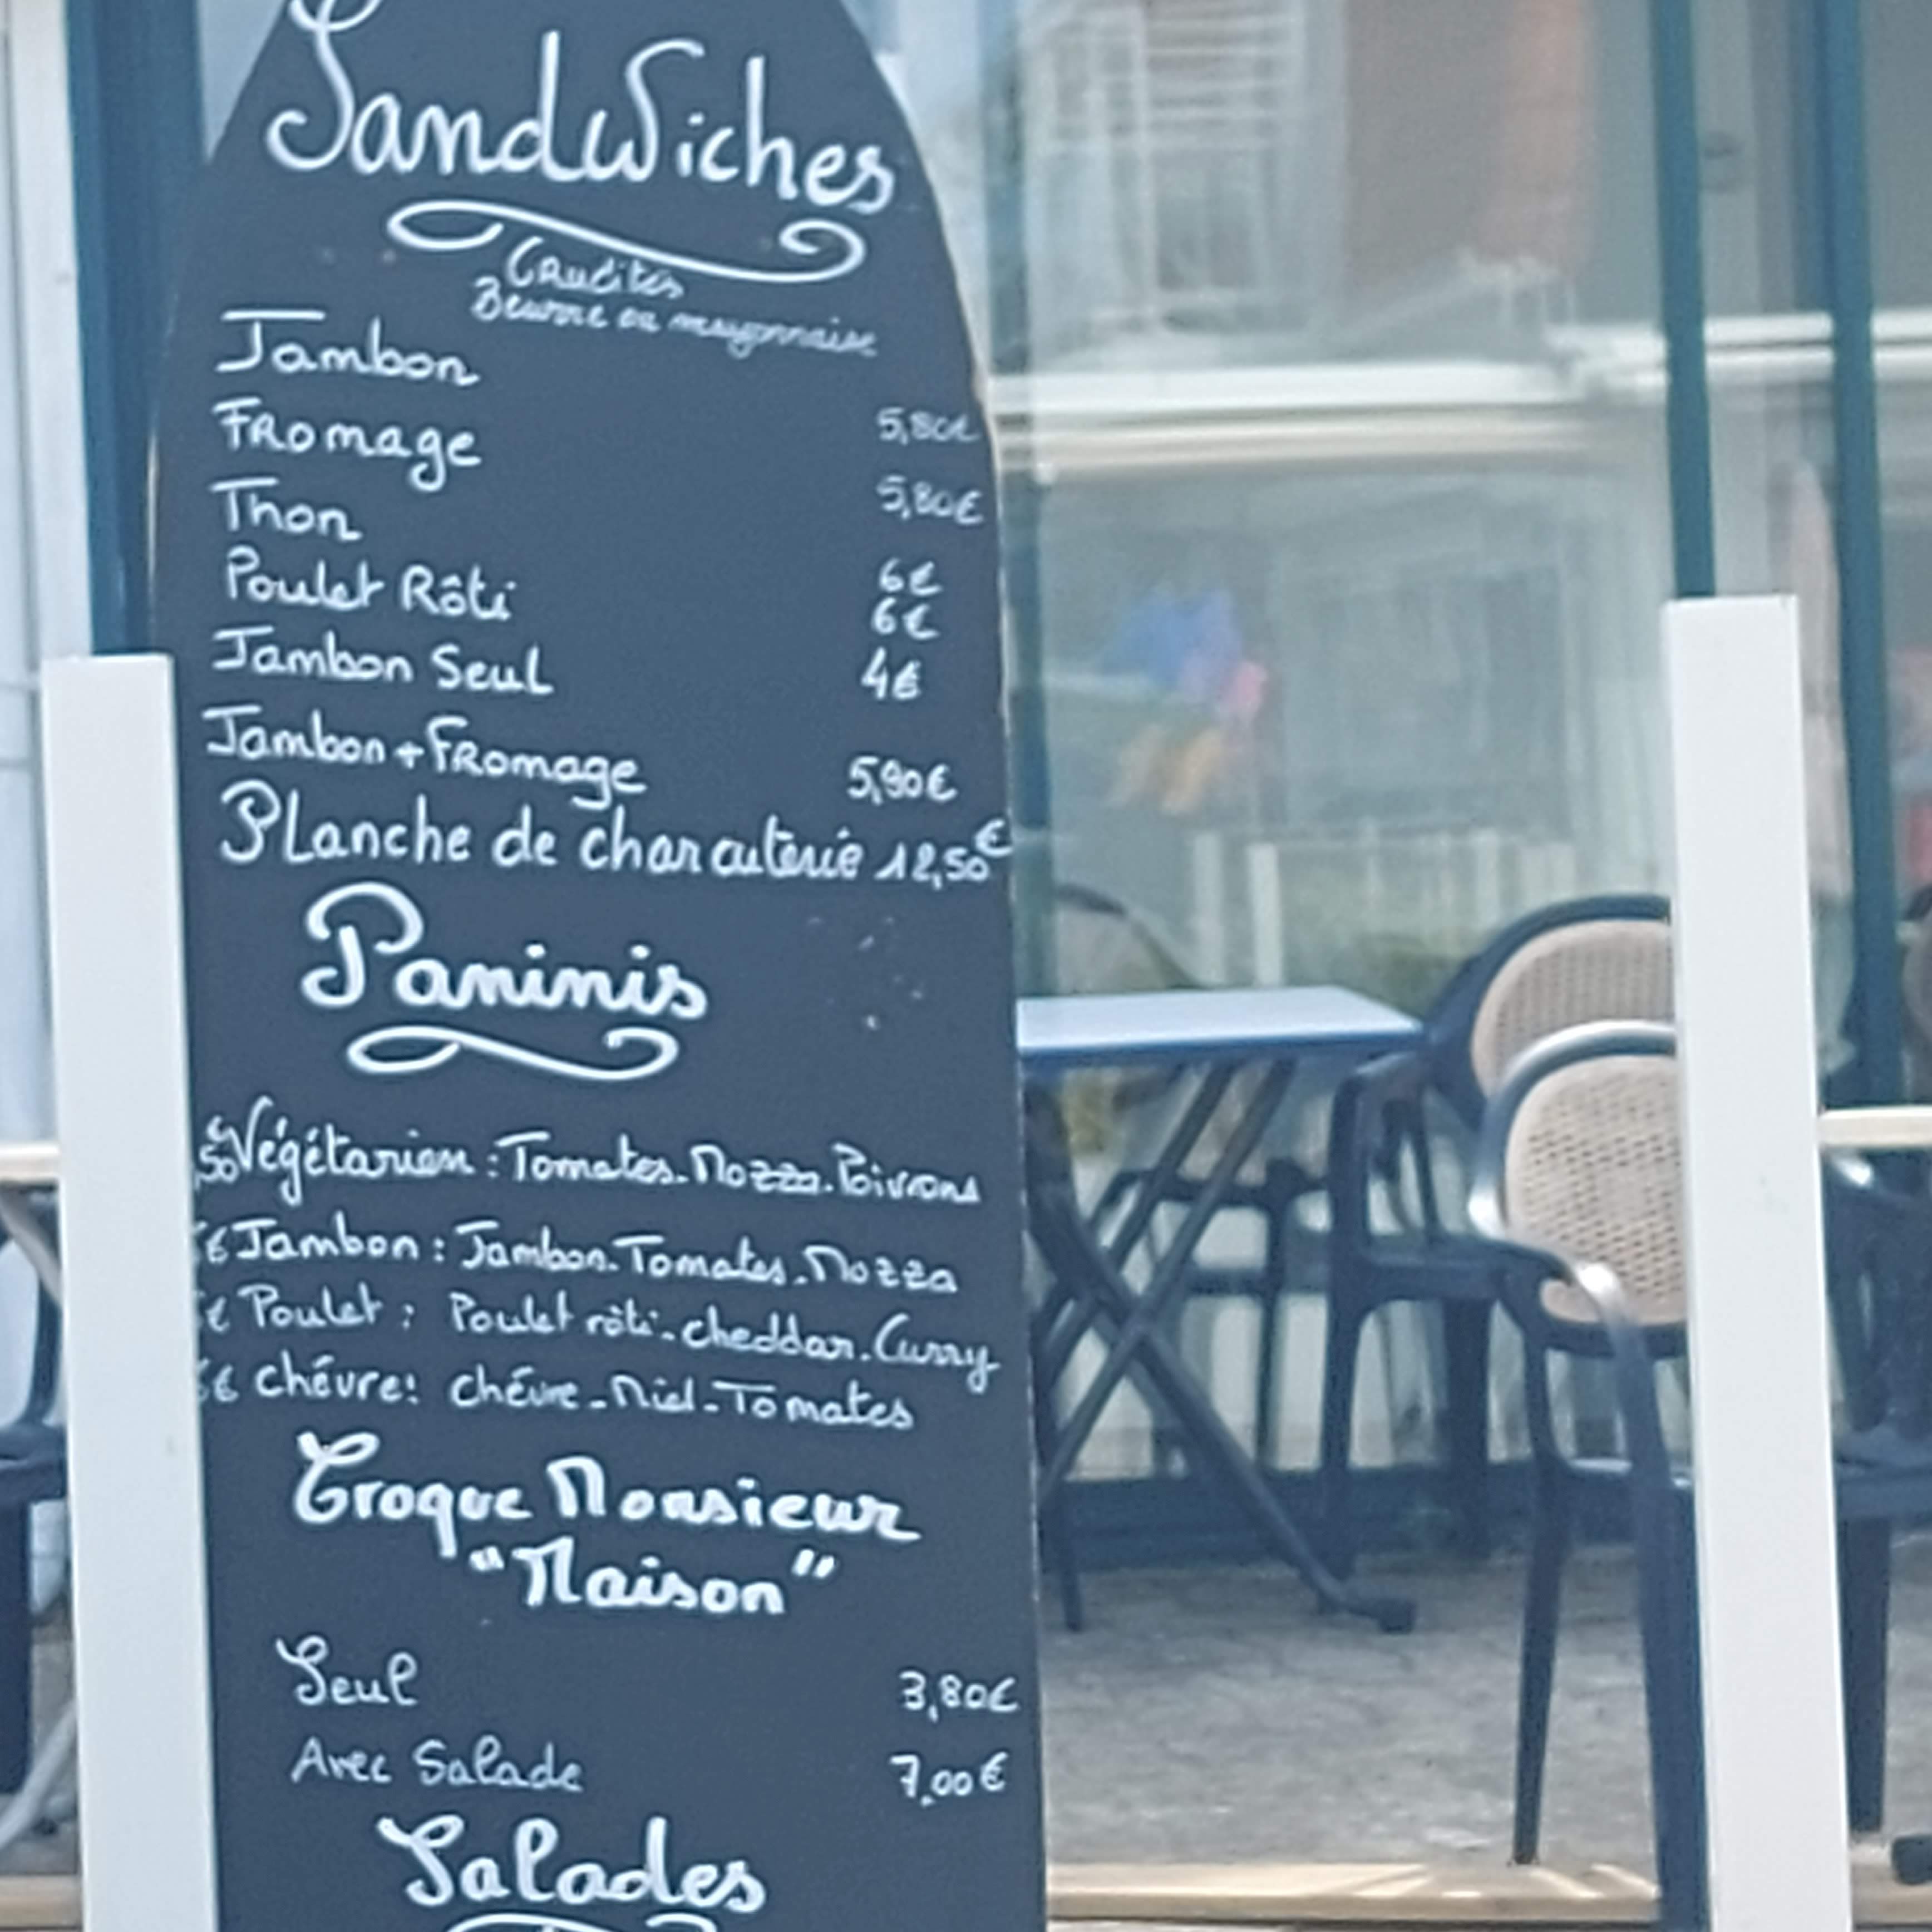 Sandwiches
Crudités
Beurre ou mayonnaise
Jambon 5,80€
Fromage 5,80€
Thon 6€
Poulet Rôti 6€
Jambon Seul 4€
Jambon + Fromage 5,90€
Planche de charcuterie 12,50€
Paninis
,50€ Végétarien : Tomates - Mozza - Poivrons
€ Jambon : Jambon - Tomates - Mozza
€ Poulet : Poulet rôti - cheddar - Curry
€ Chévre : Chévre - Miel - Tomates
Croque Monsieur
"Maison"
Seul 3,80€
Avec Salade 7,00€
Salades